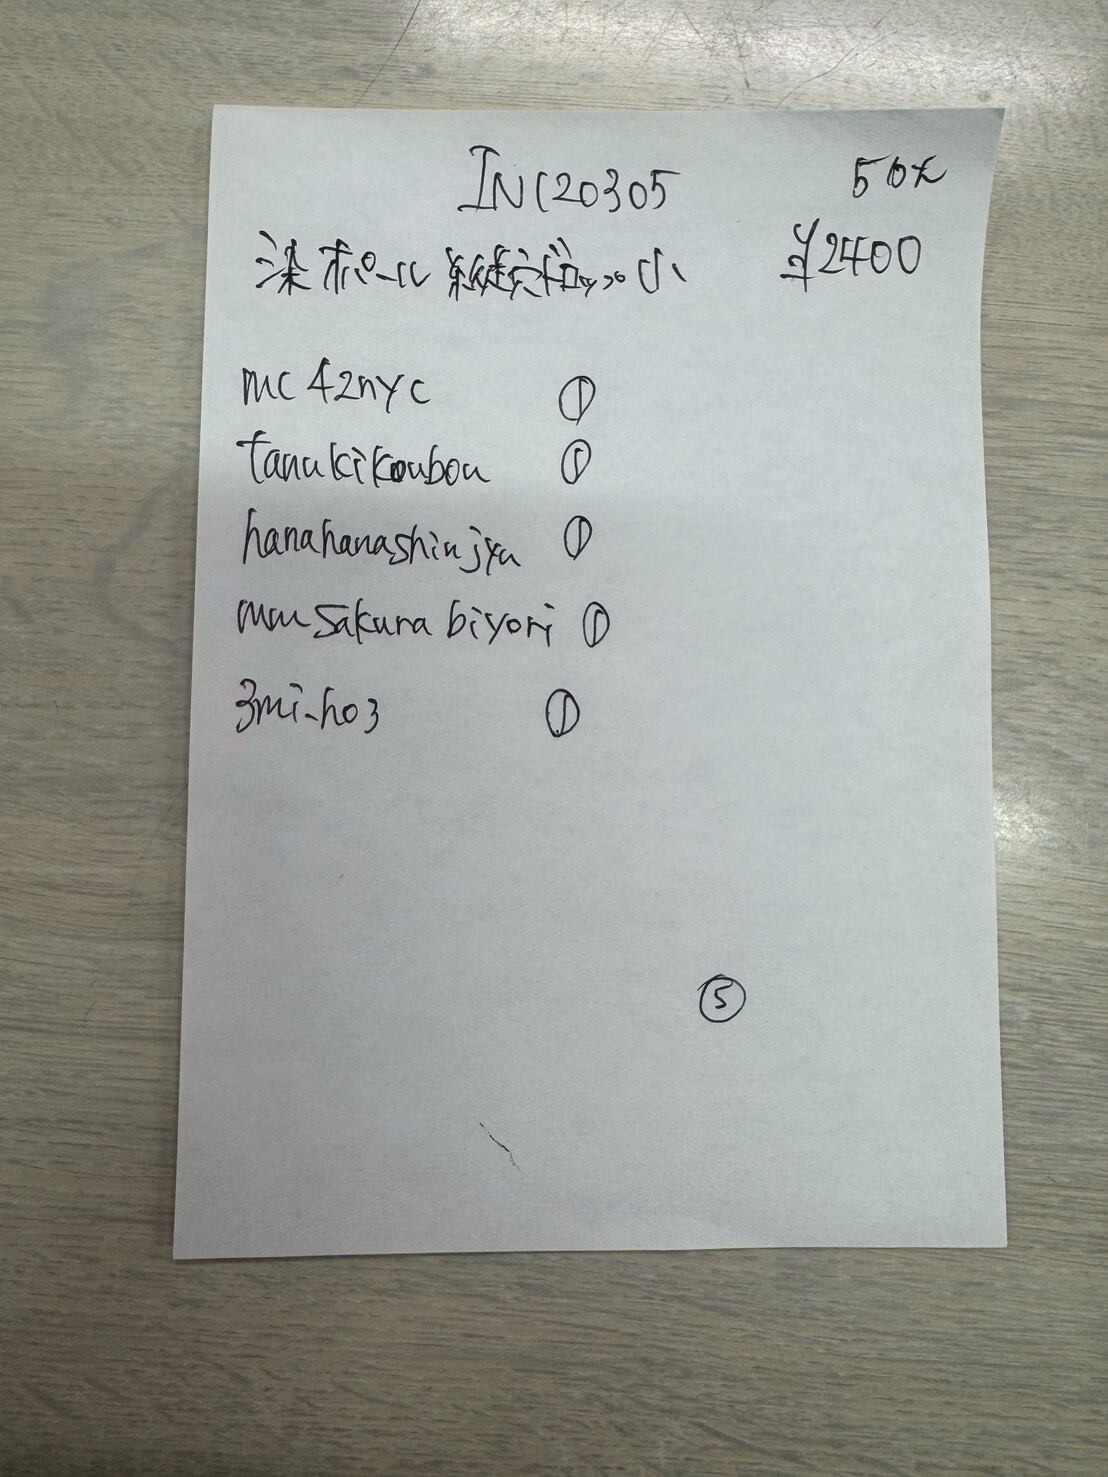 INC20305 50枚
染ポール 小 ¥2400
mc42nyc ①
tanukikoubou ①
hanahanashinjyu ①
mmsakurabiyori ①
3mi-ho3 ①
⑤